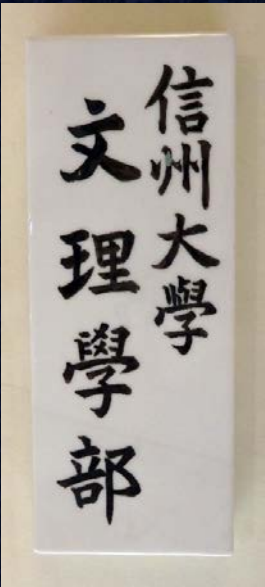 信州大學
文理學部